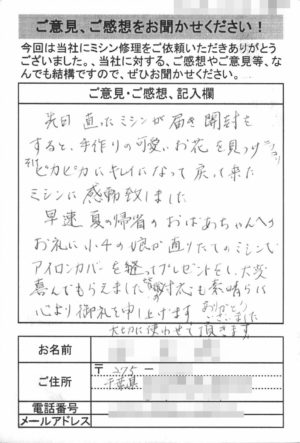 ご意見、ご感想をお聞かせください！
今回は当社にミシン修理をご依頼いただきありがとう
ございました。、当社に対する、ご感想やご意見等、な
んでも結構ですので、ぜひお聞かせください。
ご意見・ご感想、記入欄
先日 直ったミシンが届き 開封を
すると、手作りの可愛いお花を見つけ
ピカピカにキレイになって戻って来た
ミシンに 感動致しました
早速 夏の帰省のおばあちゃんへの
お礼に小4の娘が直りたてのミシンで
アイロンカバーを縫ってプレゼントをし、大変
喜んでもらえました 対応も素晴らしく
心より御礼を申し上げます ありがとう
ございました
大切に使わせて頂きます
お名前
ご住所
〒275－
千葉県
電話番号
メールアドレス